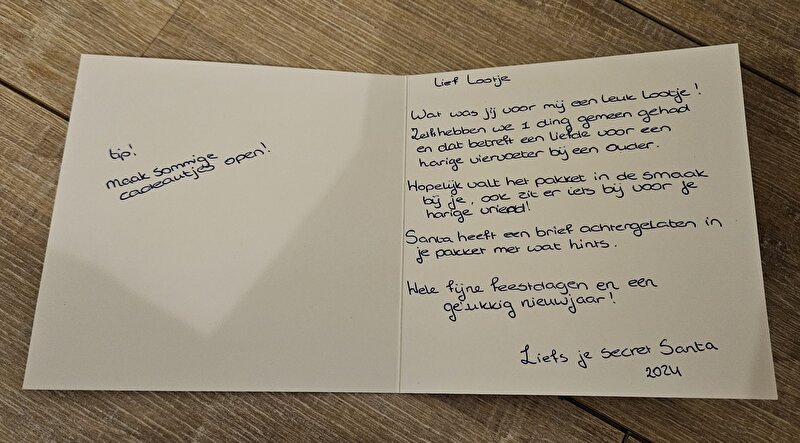 tip!
maak sommige
cadeautjes open!
Lief Lootje
Wat was jij voor mij een leuk lootje!
Zelfs hebben we 1 ding gemeen gehad
en dat betreft een liefde voor een
harige viervoeter bij een ouder.
Hopelijk valt het pakket in de smaak
bij je, ook zit er iets bij voor je
harige vriend!
Santa heeft een brief achtergelaten in
je pakket met wat hints.
Hele fijne feestdagen en een
gelukkig nieuwjaar!
Liefs je secret Santa
2024